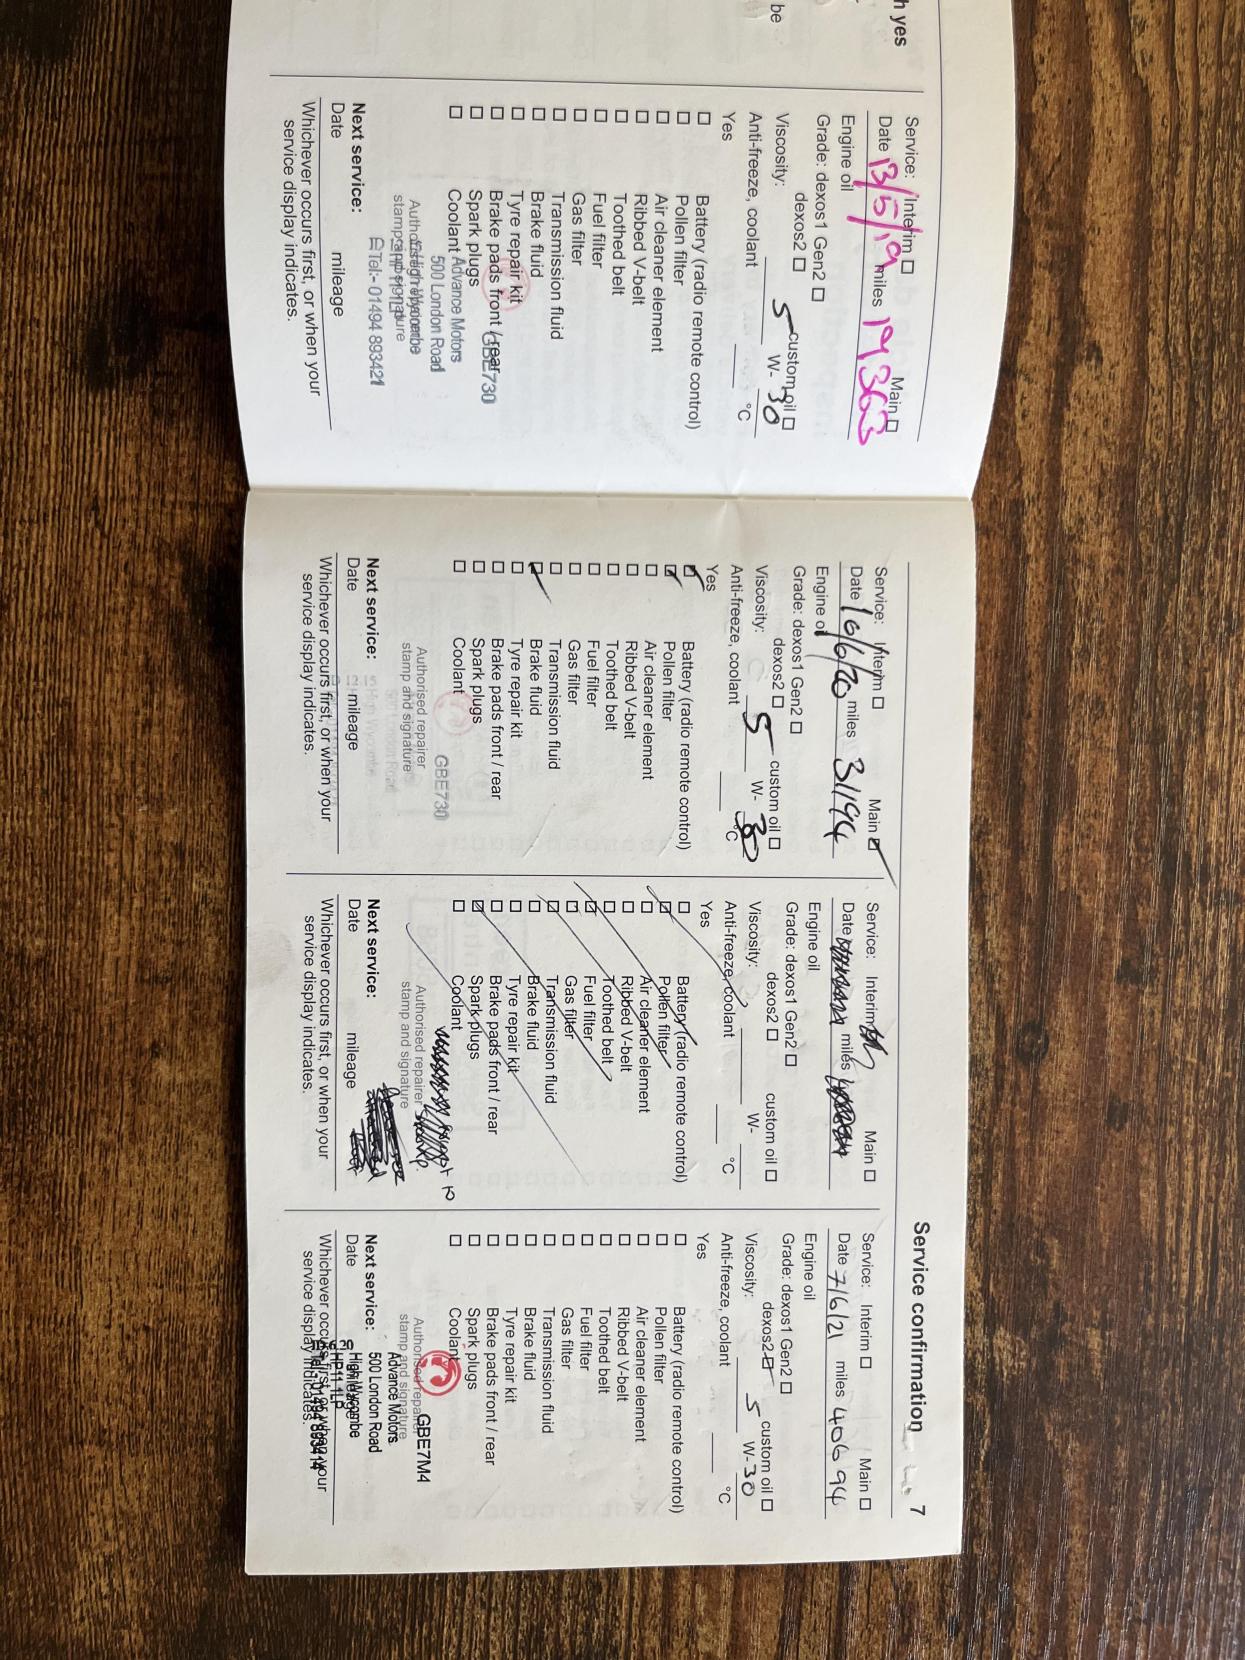 h yes
be
Service: Interim ☐ Main ☐
Date 13/5/19 miles 19363
Engine oil
Grade: dexos1 Gen2 ☐
dexos2 ☐ custom oil ☐
Viscosity: 5 W- 30
Anti-freeze, coolant °C
Yes
☐ Battery (radio remote control)
☐ Pollen filter
☐ Air cleaner element
☐ Ribbed V-belt
☐ Toothed belt
☐ Fuel filter
☐ Gas filter
☐ Transmission fluid
☐ Brake fluid
☐ Tyre repair kit
☐ Brake pads front / rear
☐ Spark plugs
☐ Coolant
GBE730
Advance Motors
500 London Road
High Wycombe
Tel:- 01494 893421
Authorised repairer
stamp and signature
Next service:
Date mileage
Whichever occurs first, or when your
service display indicates.
Service confirmation 7
Service: Interim ☐ Main ☑
Date 16/6/20 miles 31194
Engine oil
Grade: dexos1 Gen2 ☐
dexos2 ☐ custom oil ☐
Viscosity: 5 W- 30
Anti-freeze, coolant °C
Yes
☑ Battery (radio remote control)
☑ Pollen filter
☐ Air cleaner element
☐ Ribbed V-belt
☐ Toothed belt
☐ Fuel filter
☐ Gas filter
☐ Transmission fluid
☑ Brake fluid
☐ Tyre repair kit
☐ Brake pads front / rear
☐ Spark plugs
☐ Coolant
GBE730
Authorised repairer
stamp and signature
Next service:
Date mileage
Whichever occurs first, or when your
service display indicates.
Service: Interim Main ☐
Date miles
Engine oil
Grade: dexos1 Gen2 ☐
dexos2 ☐ custom oil ☐
Viscosity: W-
Anti-freeze, coolant °C
Yes
☐ Battery (radio remote control)
☐ Pollen filter
☐ Air cleaner element
☐ Ribbed V-belt
☐ Toothed belt
☐ Fuel filter
☐ Gas filter
☐ Transmission fluid
☐ Brake fluid
☐ Tyre repair kit
☐ Brake pads front / rear
☐ Spark plugs
☐ Coolant
Authorised repairer
stamp and signature
Next service:
Date mileage
Whichever occurs first, or when your
service display indicates.
Service: Interim ☐ Main ☐
Date 7/6/21 miles 40694
Engine oil
Grade: dexos1 Gen2 ☐
dexos2 ☐ custom oil ☐
Viscosity: 5 W- 30
Anti-freeze, coolant °C
Yes
☐ Battery (radio remote control)
☐ Pollen filter
☐ Air cleaner element
☐ Ribbed V-belt
☐ Toothed belt
☐ Fuel filter
☐ Gas filter
☐ Transmission fluid
☐ Brake fluid
☐ Tyre repair kit
☐ Brake pads front / rear
☐ Spark plugs
☐ Coolant
GBE7M4
Authorised repairer
stamp and signature
Advance Motors
500 London Road
High Wycombe
HP11 1LP
Tel:- 01494 893414
Next service:
Date mileage
Whichever occurs first, or when your
service display indicates.